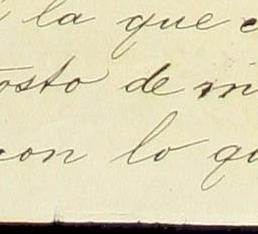 la que
osto de m
con lo qu